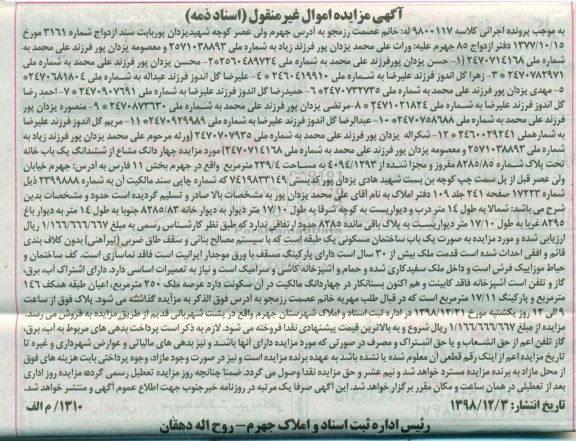 آگهی مزایده اموال غیرمنقول (اسناد ذمه)
به موجب پرونده اجرائی کلاسه ۹۸۰۰۱۱۷ له: خانم عصمت رزمجو به آدرس جهرم ولی عصر کوچه شهیدیزدان پوربابت سند ازدواج شماره ۳۱۶۱ مورخ
۱۳۷۷/۱۰/۱۵ دفتر ازدواج ۸۵ جهرم علیه: وراث علی محمد یزدان پور فرزند زیاد به شماره ملی ۲۵۷۱۰۳۸۸۹۳ و معصومه یزدان پور فرزند علی محمد به
شماره ملی ۲۴۷۰۷۱۴۱۶۸ (۱- حسن یزدان پورفرزند علی محمد به شماره ملی ۲۵۶۰۴۸۹۷۲۴ *۲-محسن یزدان پور فرزند علی محمد به شماره ملی
۲۴۷۰۷۸۲۹۷۱ * ۳- زهرا گل اندوز فرزند علیرضا به شماره ملی ۲۴۶۰۴۱۹۹۱۰ * ۴- علیرضا گل اندوز فرزند عبداله به شماره ملی ۲۴۷۰۶۸۱۸۰۴*
۵- مهدی یزدان پور فرزند علی محمد به شماره ملی ۲۴۷۰۷۳۲۷۳۵ * ۶- حمیدرضا گل اندوز فرزند علیرضا به شماره ملی ۲۴۷۰۹۰۷۶۹۱ * ۷- احمد رضا
گل اندوز فرزند علیرضا به شماره ملی ۲۴۷۱۰۲۱۸۲۴ * ۸-مرتضی یزدان پور فرزند علی محمد به شماره ملی ۲۴۷۰۸۷۳۶۳۰ * ۹- منصوره یزدان پور
فرزند علی محمد به شماره ملی ۲۴۷۰۷۵۸۶۸۸ * ۱۰- عبدالرضا گل اندوز فرزند علیرضا به شماره ملی ۲۴۷۰۹۲۹۹۸۹ * ۱۱- مریم گل اندوز فرزند علیرضا
به شماره ملی ۲۴۶۰۰۲۹۲۴۱ * ۱۲- شکراله یزدان پور فرزند علی محمد به شماره ملی ۲۴۷۰۷۰۷۹۳۵ (ورثه مرحوم علی محمد یزدان پور فرزند زیاد به
شماره ملی ۲۵۷۱۰۳۸۸۹۳ و معصومه یزدان پور فرزند علی محمد به شماره ملی ۲۴۷۰۷۱۴۱۶۸) مورد مزایده چهار دانگ مشاع از ششدانگ یک باب خانه
تحت پلاک شماره ۸۲۸۵/۸۵ مفروز و مجزا شده از ۴۰۹۴/۱۲۹۳ به مساحت ۲۳۹/۴ مترمربع واقع در جهرم بخش ۱۱ فارس به آدرس: جهرم خیابان
ولی عصر قبل از پل سمت چپ کوچه بن بست شهید هادی یزدان پور کدپستی ۷۴۱۹۸۳۳۱۴۹ که شماره چاپی سند مالکیت آن به شماره ۲۳۹۹۸۸۸ ذیل
شماره ۱۷۲۲۳ صفحه ۲۴۱ جلد ۱۰۹ دفتر املاک به نام آقای علی محمد یزدان پور به مشخصات بالا صادر و تسلیم گردیده است حدود و مشخصات بدین
شرح می باشد: شمالا به طول ۱۴ متر درب و دیواریست به کوچه شرقا به طول ۱۷/۱۰ متر دیوار به دیوار خانه ۸۲۸۵/۸۳ جنوبا به طول ۱۴ متر به دیوار باغ
۸۲۹۵ غربا به طول ۱۷/۱۰ متر دیواریست به پلاک باقی مانده ۸۲۸۵ حدود ارتفاقی ندارد که طبق نظر کارشناس رسمی به مبلغ ۱/۱۶۶/۶۶۶/۶۶۷ ریال
ارزیابی شده و مورد مزایده به صورت یک باب ساختمان مسکونی یک طبقه است که با سیستم مصالح بنائی و سقف طاق ضربی (تیرآهنی) بدون کلاف بندی
قائم و افقی احداث شده است قدمت ملک بیش از ۳۰ سال است دارای پارکینگ مسقف با ورق موجدار ایرانیت است فاقد نماسازی است. کف ساختمان و
حیاط موزاییک فرش است و داخل ملک سفیدکاری شده و حمام و آشپزخانه کاشی و سرامیک است و نیاز به تعمیرات اساسی دارد. دارای اشتراک آب، برق،
گاز و تلفن است آشپزخانه فاقد کابینت و هم اکنون بستانکار در چهاردانگ مالکیت در آن سکونت دارد عرصه ملک ۲۵۰ مترمربع، اعیان طبقه همکف ۱۴۶
مترمربع و پارکینگ ۱۷/۱۱ مترمربع است که در قبال طلب مهریه خانم عصمت رزمجو به آدرس فوق الذکر به مزایده گذاشته می شود. پلاک فوق از ساعت
۹ الی ۱۲ روز یکشنبه مورخ ۱۳۹۸/۱۲/۲۱ در اداره ثبت اسناد و املاک شهرستان جهرم واقع در پشت شهربانی قدیم از طریق مزایده به فروش می رسد.
مزایده از مبلغ ۱/۱۶۶/۶۶۶/۶۶۷ ریال شروع و به بالاترین قیمت پیشنهادی نقدا فروخته می شود. لازم به ذکر است پرداخت بدهی های مربوط به آب، برق،
گاز تلفن اعم از حق انشعاب و یا حق اشتراک و مصرف در صورتی که مورد مزایده دارای آنها باشد و نیز بدهی های مالیاتی و عوارض شهرداری و غیره تا
تاریخ مزایده اعم از اینکه رقم قطعی آن معلوم شده یا نشده باشد به عهده برنده مزایده است و نیز در صورت وجود مازاد، وجوه پرداختی بابت هزینه های فوق
از محل مازاد به برنده مزایده مسترد خواهد شد و نیم عشر و حق مزایده نقدا وصول می گردد. ضمنا چنانچه روز مزایده تعطیل رسمی گردد مزایده روز اداری
بعد از تعطیلی در همان ساعت و مکان مقرر برگزار خواهد شد. این آگهی صرفا یک مرتبه در روزنامه خبرجنوب جهت اطلاع عموم آگهی و منتشر خواهد شد.
تاریخ انتشار: ۱۳۹۸/۱۲/۳ ۱۳۱۰/ م الف
رئیس اداره ثبت اسناد و املاک جهرم- روح اله دهقان